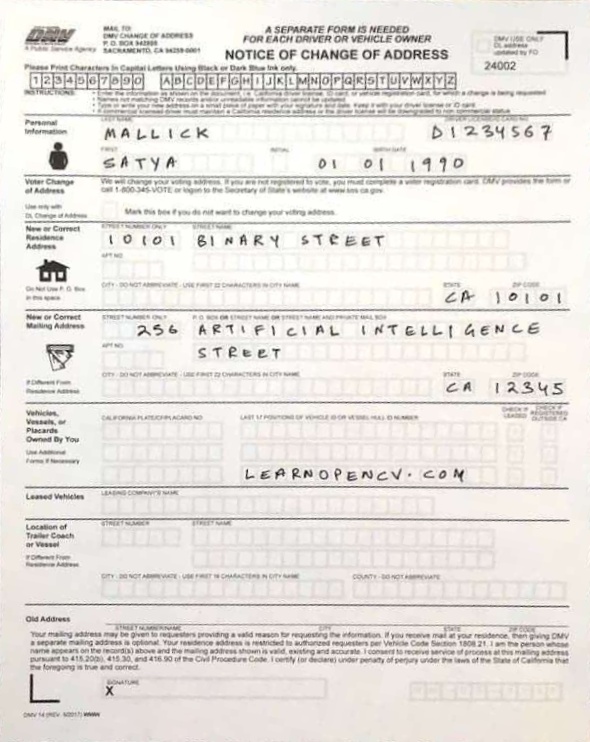 DMV
A Public Service Agency
MAIL TO:
DMV CHANGE OF ADDRESS
P. O. BOX 942859
SACRAMENTO, CA 94259-0001
A SEPARATE FORM IS NEEDED
FOR EACH DRIVER OR VEHICLE OWNER
NOTICE OF CHANGE OF ADDRESS
DMV USE ONLY
DL address
updated by FO
24002
Please Print Characters In Capital Letters Using Black or Dark Blue Ink only.
1 2 3 4 5 6 7 8 9 0 A B C D E F G H I J K L M N O P Q R S T U V W X Y Z
INSTRUCTIONS:
• Enter the information as shown on the document, i.e. California driver license, ID card, or vehicle registration card, for which a change is being requested
• Names not matching DMV records and/or unreadable information cannot be updated
• Type or write your new address on a small piece of paper with your signature and date. Keep it with your driver license or ID card
• If commercial licensed driver must maintain a California residence address or the driver license will be downgraded to non commercial status
Personal
Information
LAST NAME
DRIVER LICENSE/ID CARD NO.
MALLICK D1234567
FIRST INITIAL BIRTH DATE
SATYA 01 01 1990
Voter Change
of Address
We will change your voting address. If you are not registered to vote, you must complete a voter registration card. DMV provides the form or
call 1-800-345-VOTE or logon to the Secretary of State's website at www.sos.ca.gov.
Use only with
DL Change of Address
Mark this box if you do not want to change your voting address.
New or Correct
Residence
Address
STREET NUMBER ONLY STREET NAME
10101 BINARY STREET
APT NO.
Do Not Use P. O. Box
in this space
CITY - DO NOT ABBREVIATE - USE FIRST 22 CHARACTERS IN CITY NAME STATE ZIP CODE
CA 10101
New or Correct
Mailing Address
STREET NUMBER ONLY P. O. BOX OR STREET NAME OR STREET NAME AND PRIVATE MAIL BOX
256 ARTIFICIAL INTELLIGENCE
APT NO.
STREET
If Different From
Residence Address
CITY - DO NOT ABBREVIATE - USE FIRST 22 CHARACTERS IN CITY NAME STATE ZIP CODE
CA 12345
Vehicles,
Vessels, or
Placards
Owned By You
CALIFORNIA PLATE/CF/PLACARD NO. LAST 17 POSITIONS OF VEHICLE ID OR VESSEL HULL ID NUMBER
CHECK IF LEASED
CHECK IF REGISTERED OUTSIDE CA
Use Additional
Forms If Necessary
LEARNOPENCV.COM
Leased Vehicles
LEASING COMPANY'S NAME
Location of
Trailer Coach
or Vessel
STREET NUMBER STREET NAME
If Different From
Residence Address
CITY - DO NOT ABBREVIATE - USE FIRST 18 CHARACTERS IN CITY NAME COUNTY - DO NOT ABBREVIATE
Old Address
STREET NUMBER/NAME CITY STATE ZIP CODE
Your mailing address may be given to requesters providing a valid reason for requesting the information. If you receive mail at your residence, then giving DMV
a separate mailing address is optional. Your residence address is restricted to authorized requesters per Vehicle Code Section 1808.21. I am the person whose
name appears on the record(s) above and the mailing address shown is valid, existing and accurate. I consent to receive service of process at this mailing address
pursuant to 415.20(b), 415.30, and 416.90 of the Civil Procedure Code. I certify (or declare) under penalty of perjury under the laws of the State of California that
the foregoing is true and correct.
SIGNATURE
X
DMV 14 (REV. 5/2017) WWW